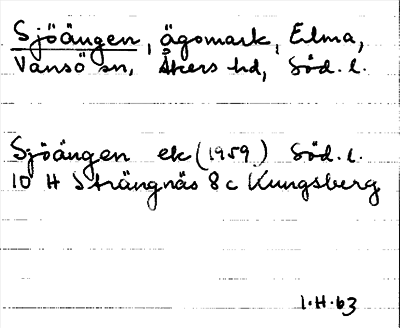 Sjöängen, ägomark, Eilma,
Vansö sn, Åkers hd, Söd. l.
Sjöängen ek (1959) Söd. l.
10 H Strängnäs 8 c Kungsberg
1.H.63